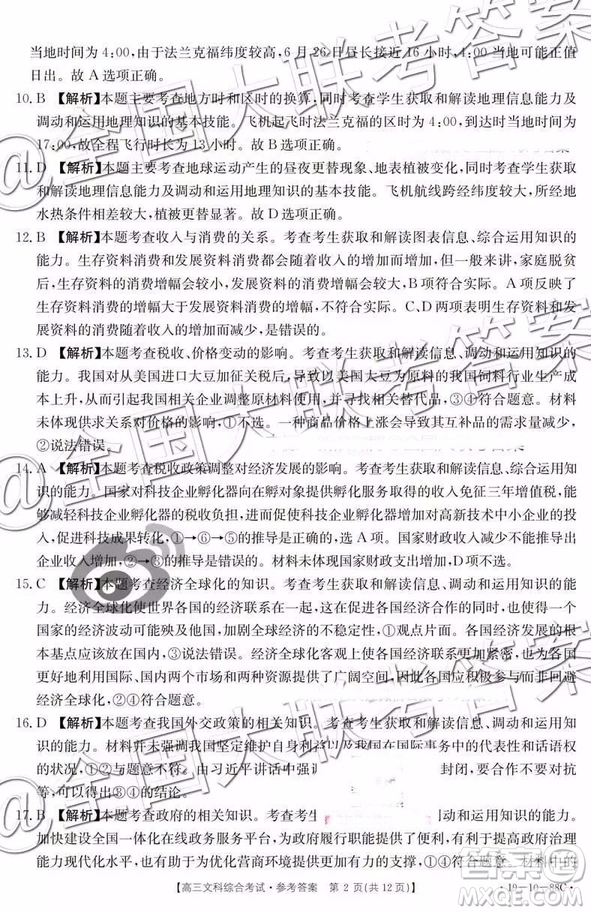 当地时间为 4:00,由于法兰克福纬度较高,6 月 26 日昼长接近 16 小时,4:00 当地可能正值
日出。故 A 选项正确。
10. B 【解析】本题主要考查地方时和区时的换算,同时考查学生获取和解读地理信息能力及
调动和运用地理知识的基本技能。飞机起飞时法兰克福的区时为 4:00,到达时当地时间为
17:00,故全程飞行时长为 13 小时。故 B 选项正确。
11. D 【解析】本题主要考查地球运动产生的昼夜更替现象、地表植被变化,同时考查学生获取
和解读地理信息能力及调动和运用地理知识的基本技能。飞机航线跨经纬度较大,所经地
水热条件相差较大,植被更替显著。故 D 选项正确。
12. B 【解析】本题考查收入与消费的关系。考查考生获取和解读图表信息、综合运用知识的
能力。生存资料消费和发展资料消费都会随着收入的增加而增加,但一般来说,家庭脱贫
后,生存资料消费的增幅会较小,发展资料消费的增幅会较大,B 项符合实际。A 项反映了
生存资料消费的增幅大于发展资料消费的增幅,不符合实际。C、D 两项表明生存资料和发
展资料消费随着收入的增加而减少,是错误的。
13. D 【解析】本题考查税收、价格变动的影响。考查考生获取和解读信息、调动和运用知识的
能力。我国对从美国进口大豆加征关税后,导致以美国大豆为原料的我国饲料行业生产成
本上升,从而引起我国相关企业调整原材料的使用,开发其他替代产品,③④符合题意。材料
未体现供求关系对价格的影响,①不选。一种商品价格上涨会导致其互补品的需求减少,
②说法错误。
14. A 【解析】本题考查税收政策调整对经济发展的影响。考查考生获取和解读信息、调动和
运用知识的能力。国家对科技企业孵化器向在孵对象提供孵化服务取得的收入免征三年增值税,能
够减轻科技企业孵化器的税收负担,进而促使科技企业孵化器增加对高新技术中小企业的投
入,促进科技成果转化,①→⑥→⑤的推导是正确的。材料未体现国家财政支出增加,D 项不选。
15. C 【解析】本题考查经济全球化的知识。考查考生获取和解读信息、调动和运用知识的能
力。经济全球化使世界各国的经济联系在一起,这在促进各国经济合作的同时,也使得一个
国家的经济波动可能殃及他国,加剧全球经济的不稳定性,①误。③说法错误,当前,更好地
利用国际、国内两个市场和两种资源为我国的经济发展提供了广阔空间,应积极参与而非回避
经济全球化,②④符合题意。
16. D 【解析】本题考查我国外交政策的相关知识。考查考生获取和解读信息、调动和运用知识的
能力。材料并未强调我国坚定维护自身利益和我国在国际事务中的代表性和话语权
的状况,①②与题意不符。由习近平讲话中强调
封闭,要开放不要对抗
等,可以得出③④符合题意。
17. B 【解析】本题考查政府的相关知识。考查考生
动和运用知识的能力。
加快建设全国一体化在线政务服务平台,为政府履行职能提供了
能力现代化水平,更好地满足
高三文科综合考试·参考答案 第 2 页(共 12 页)
·19-10-88C·
@全国大联考答案